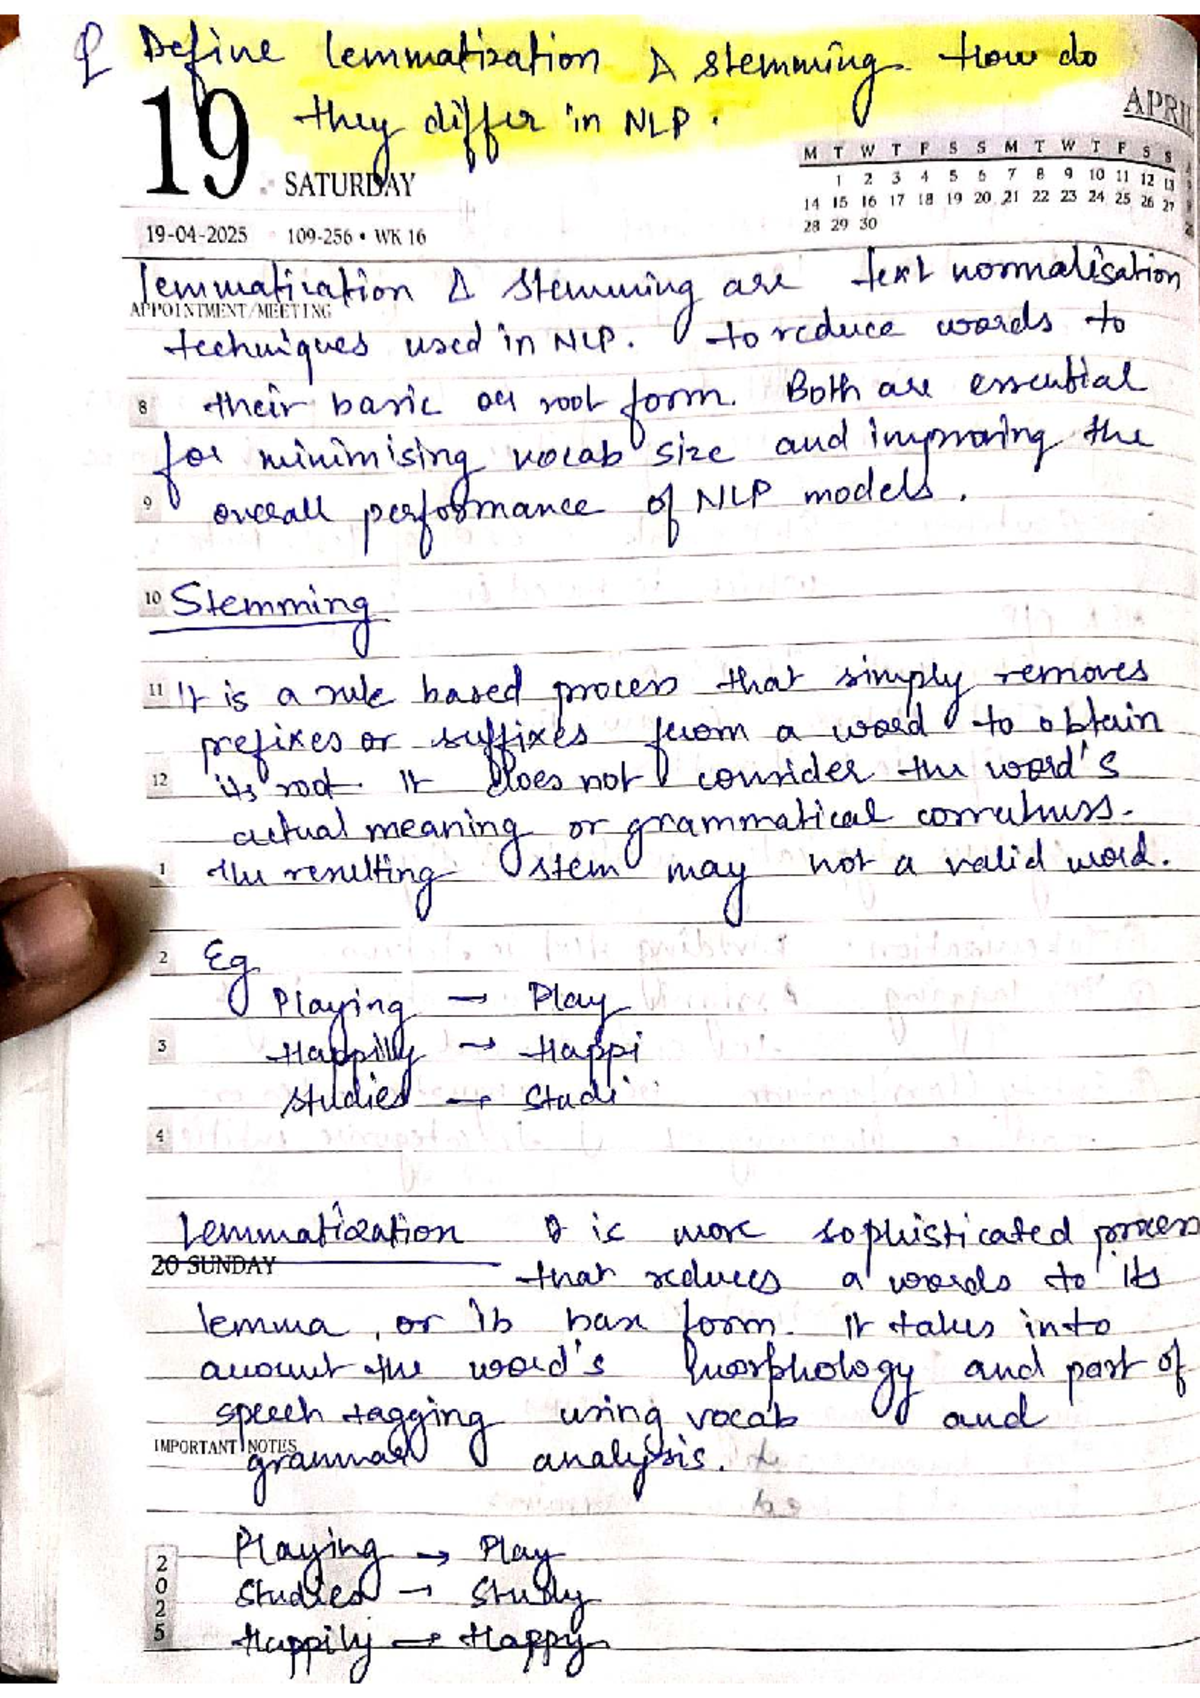 Q Define lemmatization & stemming. How do
they differ in NLP.
19
SATURDAY
APRIL
M T W T F S S M T W T F S S
1 2 3 4 5 6 7 8 9 10 11 12 13
14 15 16 17 18 19 20 21 22 23 24 25 26 27
28 29 30
19-04-2025 109-256 • WK 16
lemmatization & stemming are text normalisation
APPOINTMENT/MEETING
techniques used in NLP. to reduce words to
8 their basic or root form. Both are essential
for minimising vocab size and improving the
9 overall performance of NLP models.
10 Stemming
11 It is a rule based process that simply removes
prefixes or suffixes from a word to obtain
12 its root. It does not consider the word's
actual meaning or grammatical correctness.
1 the resulting stem may not a valid word.
2 Eg
Playing → Play
3 Happily → Happi
Studies → Studi
4
Lemmatization It is more sophisticated process
20 SUNDAY
that reduces a words to its
lemma, or its base form. It takes into
account the word's morphology and part of
speech tagging using vocab and
IMPORTANT NOTES
grammar analysis.
Playing → Play
Studies → Study
Happily → Happy
2025